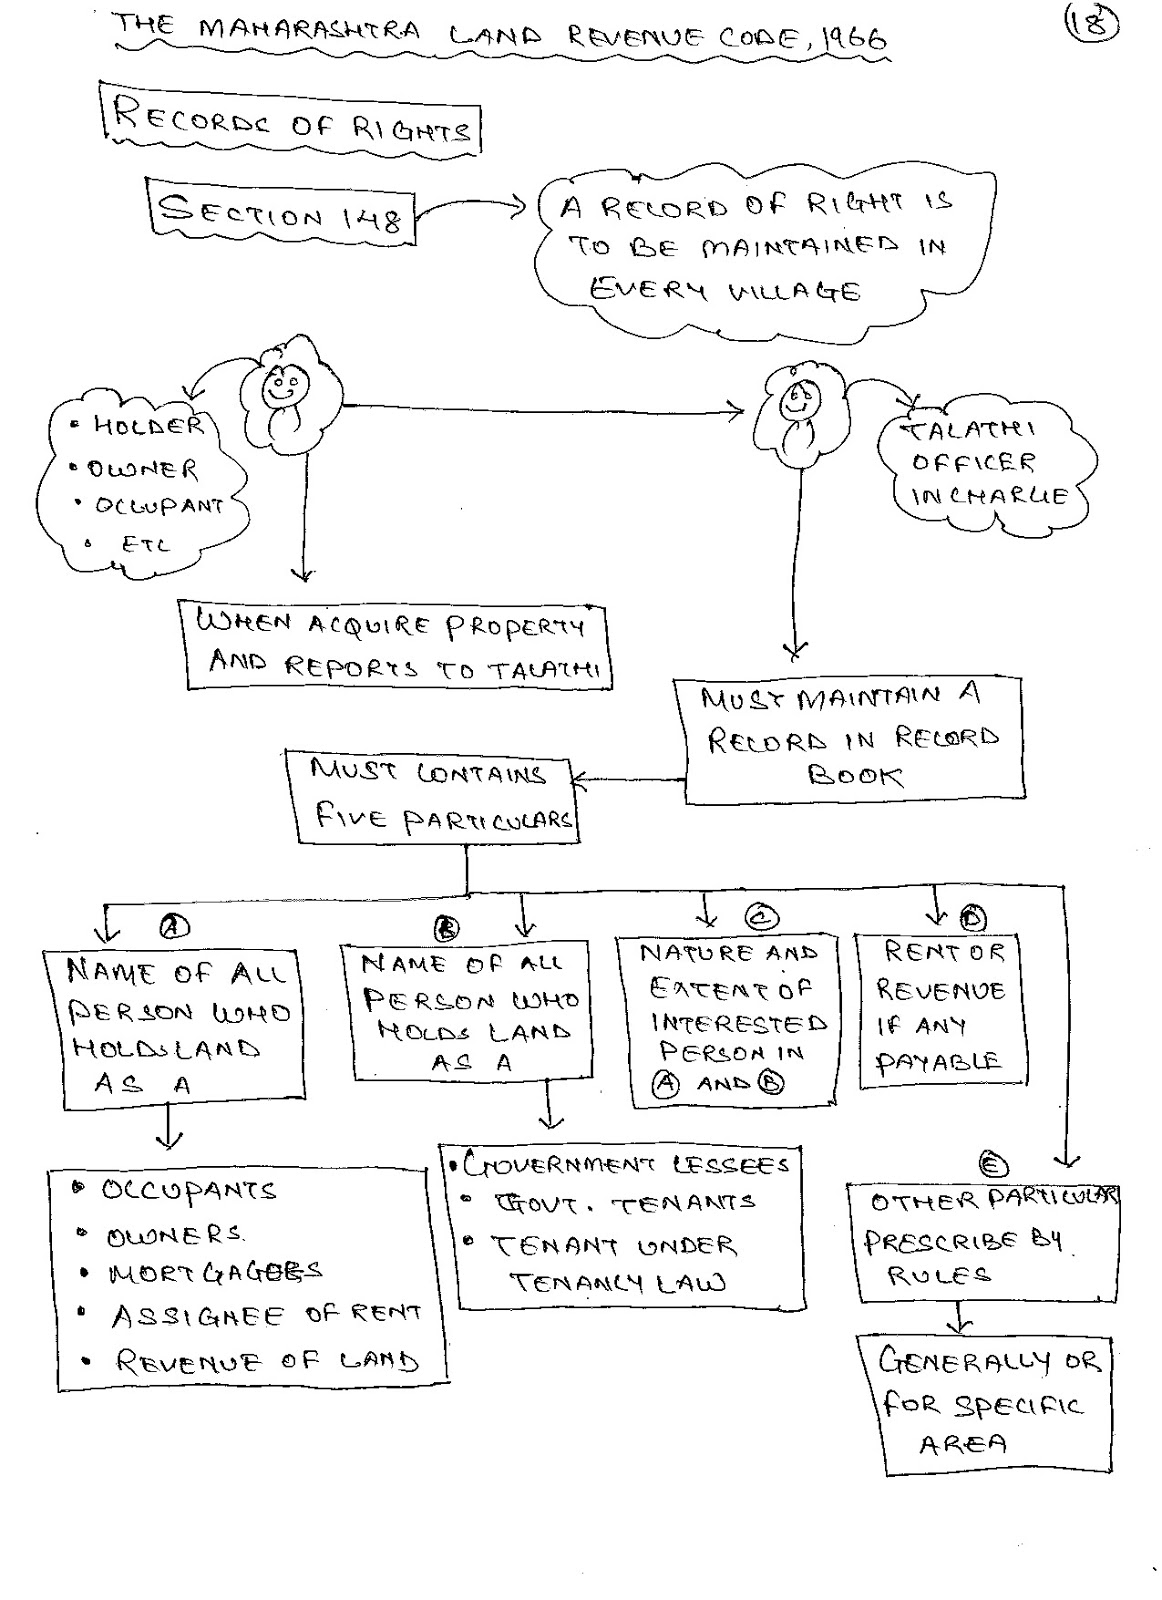 THE MAHARASHTRA LAND REVENUE CODE, 1966
18
RECORDS OF RIGHTS
SECTION 148
A RECORD OF RIGHT IS
TO BE MAINTAINED IN
EVERY VILLAGE
• HOLDER
• OWNER
• OCCUPANT
• ETC
TALATHI
OFFICER
INCHARGE
WHEN ACQUIRE PROPERTY
AND REPORTS TO TALATHI
MUST MAINTAIN A
RECORD IN RECORD
BOOK
MUST CONTAINS
FIVE PARTICULARS
A
NAME OF ALL
PERSON WHO
HOLDS LAND
AS A
B
NAME OF ALL
PERSON WHO
HOLDS LAND
AS A
C
NATURE AND
EXTENT OF
INTERESTED
PERSON IN
A AND B
D
RENT OR
REVENUE
IF ANY
PAYABLE
• OCCUPANTS
• OWNERS.
• MORTGAGEES
• ASSIGNEE OF RENT
• REVENUE OF LAND
• GOVERNMENT LESSEES
• GOVT. TENANTS
• TENANT UNDER
TENANCY LAW
E
OTHER PARTICULAR
PRESCRIBE BY
RULES
GENERALLY OR
FOR SPECIFIC
AREA